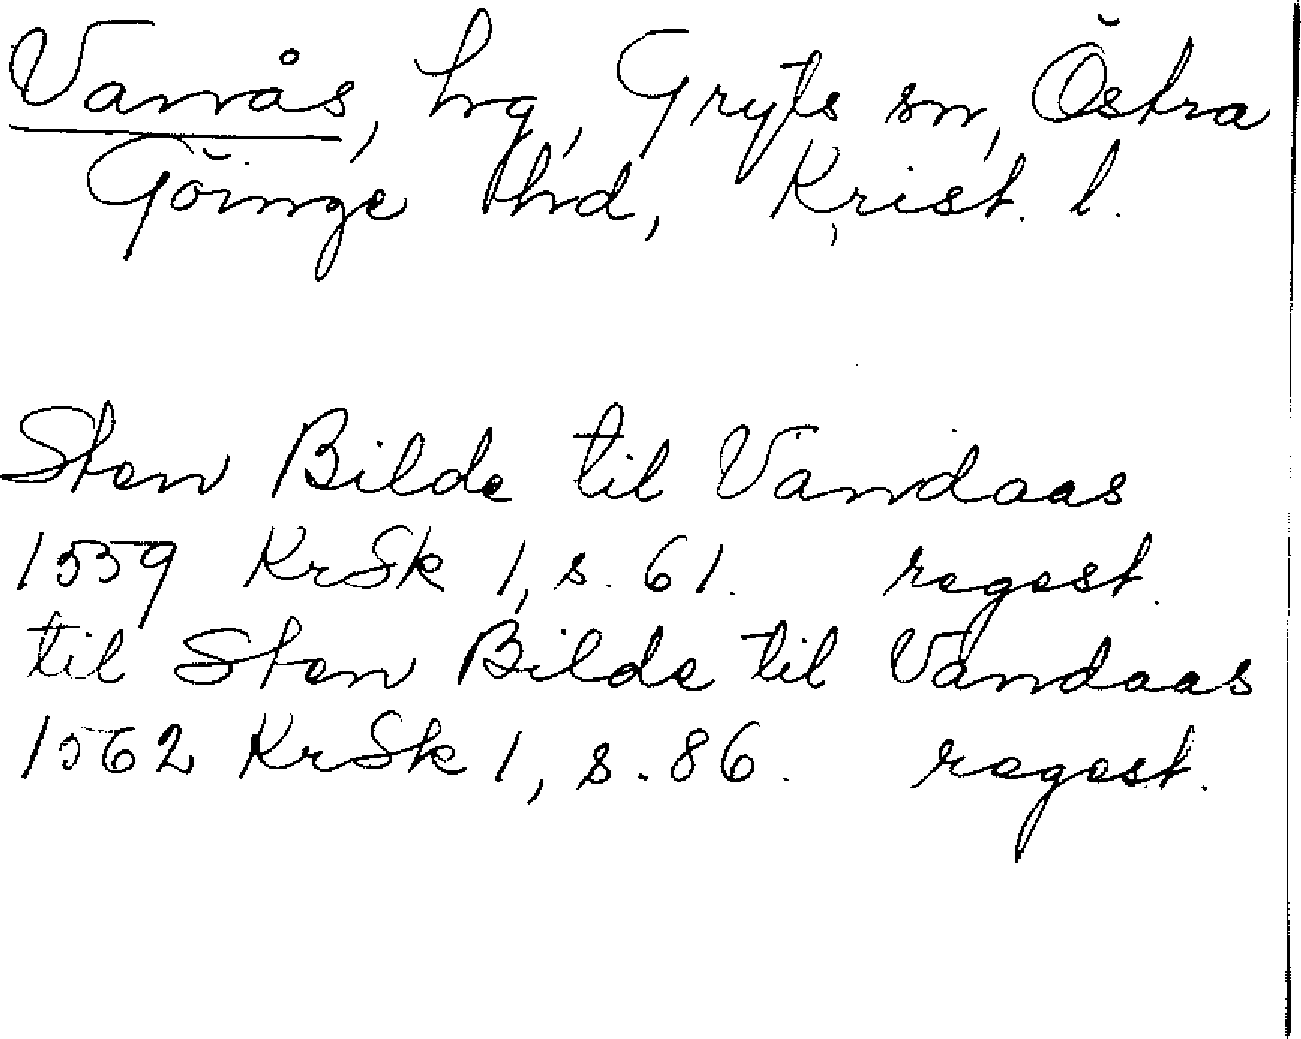 Vanås, hg, Gryts sn, Östra
Göinge hd, Krist. l.
Sten Bilde til Vandaas
1559 KrSk 1, s. 61. regest.
til Sten Bilde til Vandaas
1562 KrSk 1, s. 86. regest.